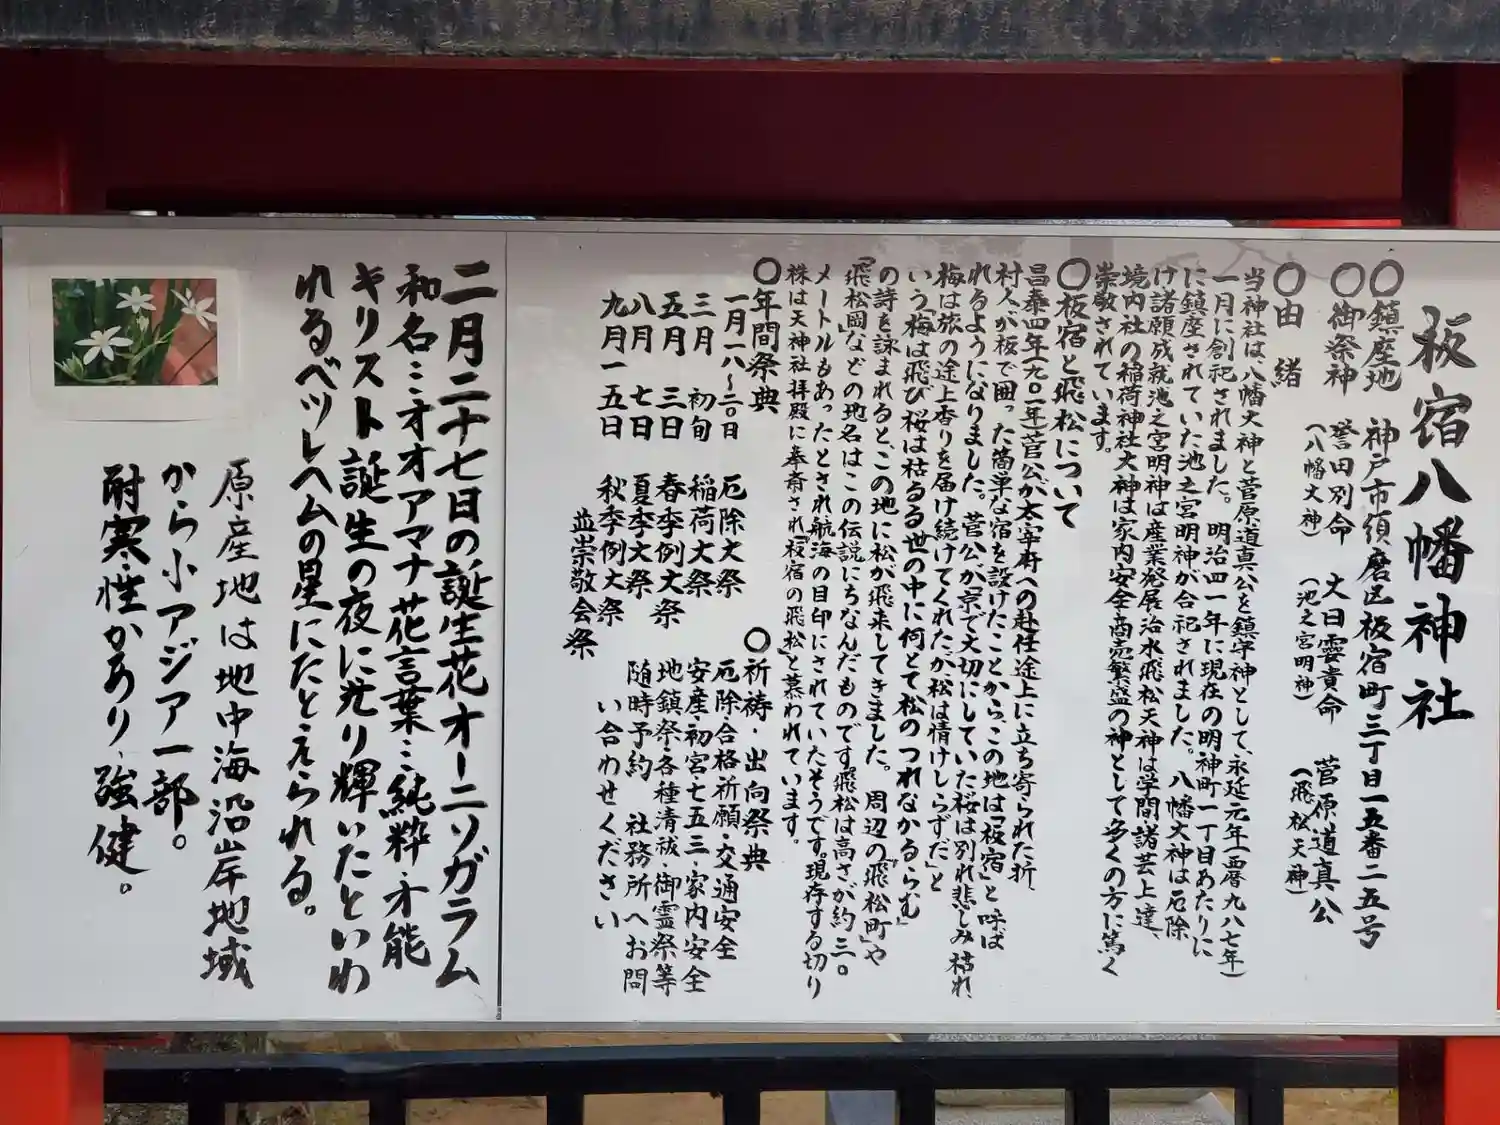 板宿八幡神社
〇鎮座地　神戸市須磨区板宿町三丁目一五番二五号
〇御祭神　誉田別命　大日孁貴命　菅原道真公
（八幡大神）　（池之宮明神）　（飛松天神）
〇由　緒
当神社は、八幡大神と菅原道真公を鎮守神として、永延元年（西暦九八七年）
一月に創祀されました。明治四一年に現在の明神町一丁目あたりに
に鎮座されていた池之宮明神が合祀されました。八幡大神は厄除
け諸願成就池之宮明神は産業発展治水飛松天神は学問諸芸上達、
境内社の稲荷神社大神は家内安全商売繁盛の神として多くの方に篤く
崇敬されています。
〇板宿と飛松について
昌泰四年（九〇一年）菅公が太宰府への赴任途上に立ち寄られた折、
村人が板で囲った簡単な宿を設けたことから、この地は「板宿」と呼ば
れるようになりました。菅公が京で大切にしていた桜は別れ悲しみ枯れ、
梅は旅の途上香りを届け続けてくれたが松は情けしらずだ」と
いう「梅は飛び桜は枯るる世の中に何とて松のつれなかるらむ」
の詩を詠まれると、この地に松が飛来してきました。周辺の「飛松町」や
「飛松岡」などの地名はこの伝説にちなんだものです。飛松は高さが約三〇
メートルもあったとされ航海の目印にされていたそうです。現存する切り
株は天神社拝殿に奉斎され「板宿の飛松」と慕われています。
〇年間祭典
一月一八〜二〇日　厄除大祭
三月　初旬　稲荷大祭
五月　三日　春季例大祭
八月　七日　夏季大祭
九月一五日　秋季例大祭
並崇敬会祭
〇祈祷・出向祭典
厄除・合格祈願・交通安全
安産・初宮・七五三・家内安全
地鎮祭・各種清祓・御霊祭等
随時予約　社務所へお問
い合わせください
二月二十七日の誕生花オーニソガラム
和名…オオアマナ花言葉…純粋・才能
キリスト誕生の夜に光り輝いたといわ
れるベツレヘムの星にたとえられる。
原産地は地中海沿岸地域
から小アジア一部。
耐寒性があり、強健。